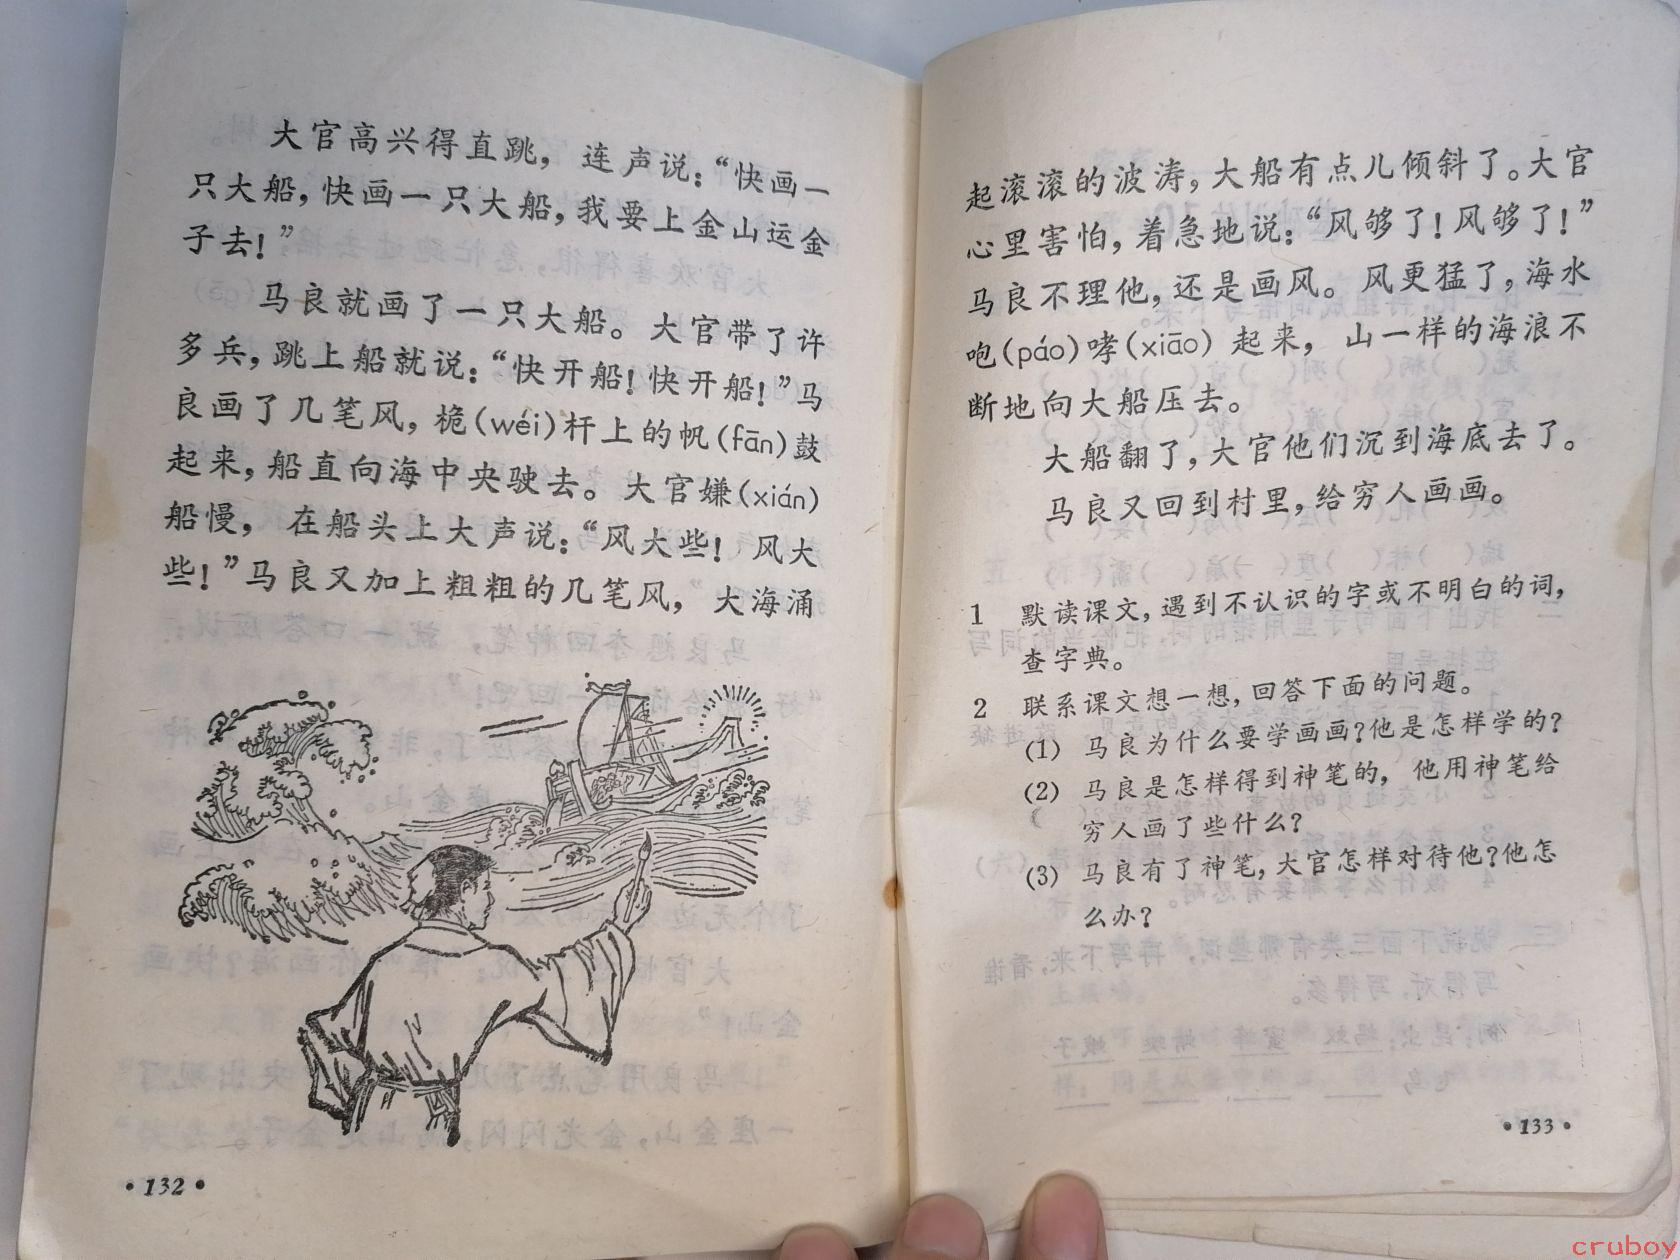 大官高兴得直跳，连声说：“快画一
只大船，快画一只大船，我要上金山运金
子去！”
马良就画了一只大船。大官带了许
多兵，跳上船就说：“快开船！快开船！”马
良画了几笔风，桅(wéi)杆上的帆(fān)鼓
起来，船直向海中央驶去。大官嫌(xián)
船慢，在船头上大声说：“风大些！风大
些！”马良又加上粗粗的几笔风，大海涌
·132·
起滚滚的波涛，大船有点儿倾斜了。大官
心里害怕，着急地说：“风够了！风够了！”
马良不理他，还是画风。风更猛了，海水
咆(páo)哮(xiāo)起来，山一样的海浪不
断地向大船压去。
大船翻了，大官他们沉到海底去了。
马良又回到村里，给穷人画画。
1 默读课文，遇到不认识的字或不明白的词，
查字典。
2 联系课文想一想，回答下面的问题。
(1) 马良为什么要学画画？他是怎样学的？
(2) 马良是怎样得到神笔的，他用神笔给
穷人画了些什么？
(3) 马良有了神笔，大官怎样对待他？他怎
么办？
·133·
cruboy